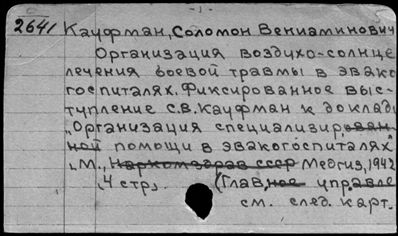 - 1 -
2641 Кауфман, Соломон Вениаминович
Организация воздухо-солнце
лечения боевой травмы в эвако
госпиталях. Фиксированное выс-
тупление С.В. Кауфман к доклад
„Организация специализирован-
ной помощи в эвакогоспиталях"
М., Наркомздрав СССР Медгиз, 1942
4 стр. (Главное управле
см. след. карт.